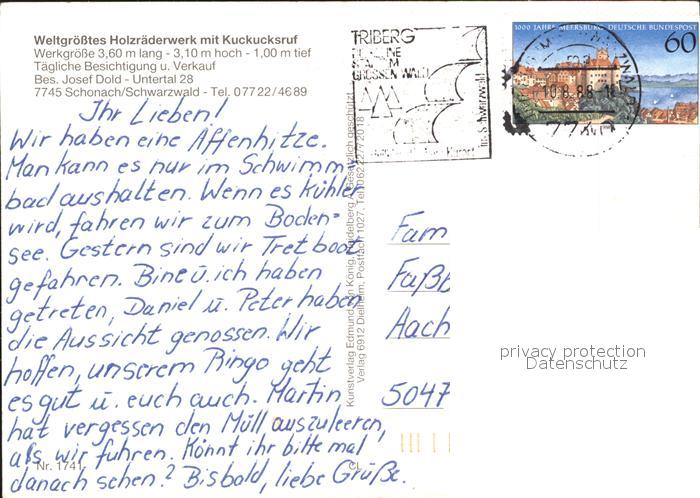 Weltgrößtes Holzräderwerk mit Kuckucksruf
Werkgröße 3,60 m lang - 3,10 m hoch - 1,00 m tief
Tägliche Besichtigung u. Verkauf
Bes. Josef Dold - Untertal 28
7745 Schonach/Schwarzwald - Tel. 07722/4689
Ihr Lieben!
Wir haben eine Affenhitze.
Man kann es nur im Schwimm-
bad aushalten. Wenn es kühler
wird, fahren wir zum Boden-
see. Gestern sind wir Tretboot
gefahren. Bine u. ich haben
getreten, Daniel u. Peter haben
die Aussicht genossen. Wir
hoffen, unserem Ringo geht
es gut u. euch auch. Martin
hat vergessen den Müll auszuleeren,
als wir fuhren. Könnt ihr bitte mal
danach sehen? Bisbald, liebe Grüße.
Nr. 1741
CL
Kunstverlag Edmund von König, Heidelberg - Gesetzlich geschützt
Verlag 6912 Dielheim, Postfach 1027, Tel. 06222/72018
TRIBERG
GROSSEN WALD
im Schwarzwald
1000 JAHRE MEERSBURG DEUTSCHE BUNDESPOST
60
10.8.88
Fam
Faßb
Aach
5047
privacy protection
Datenschutz